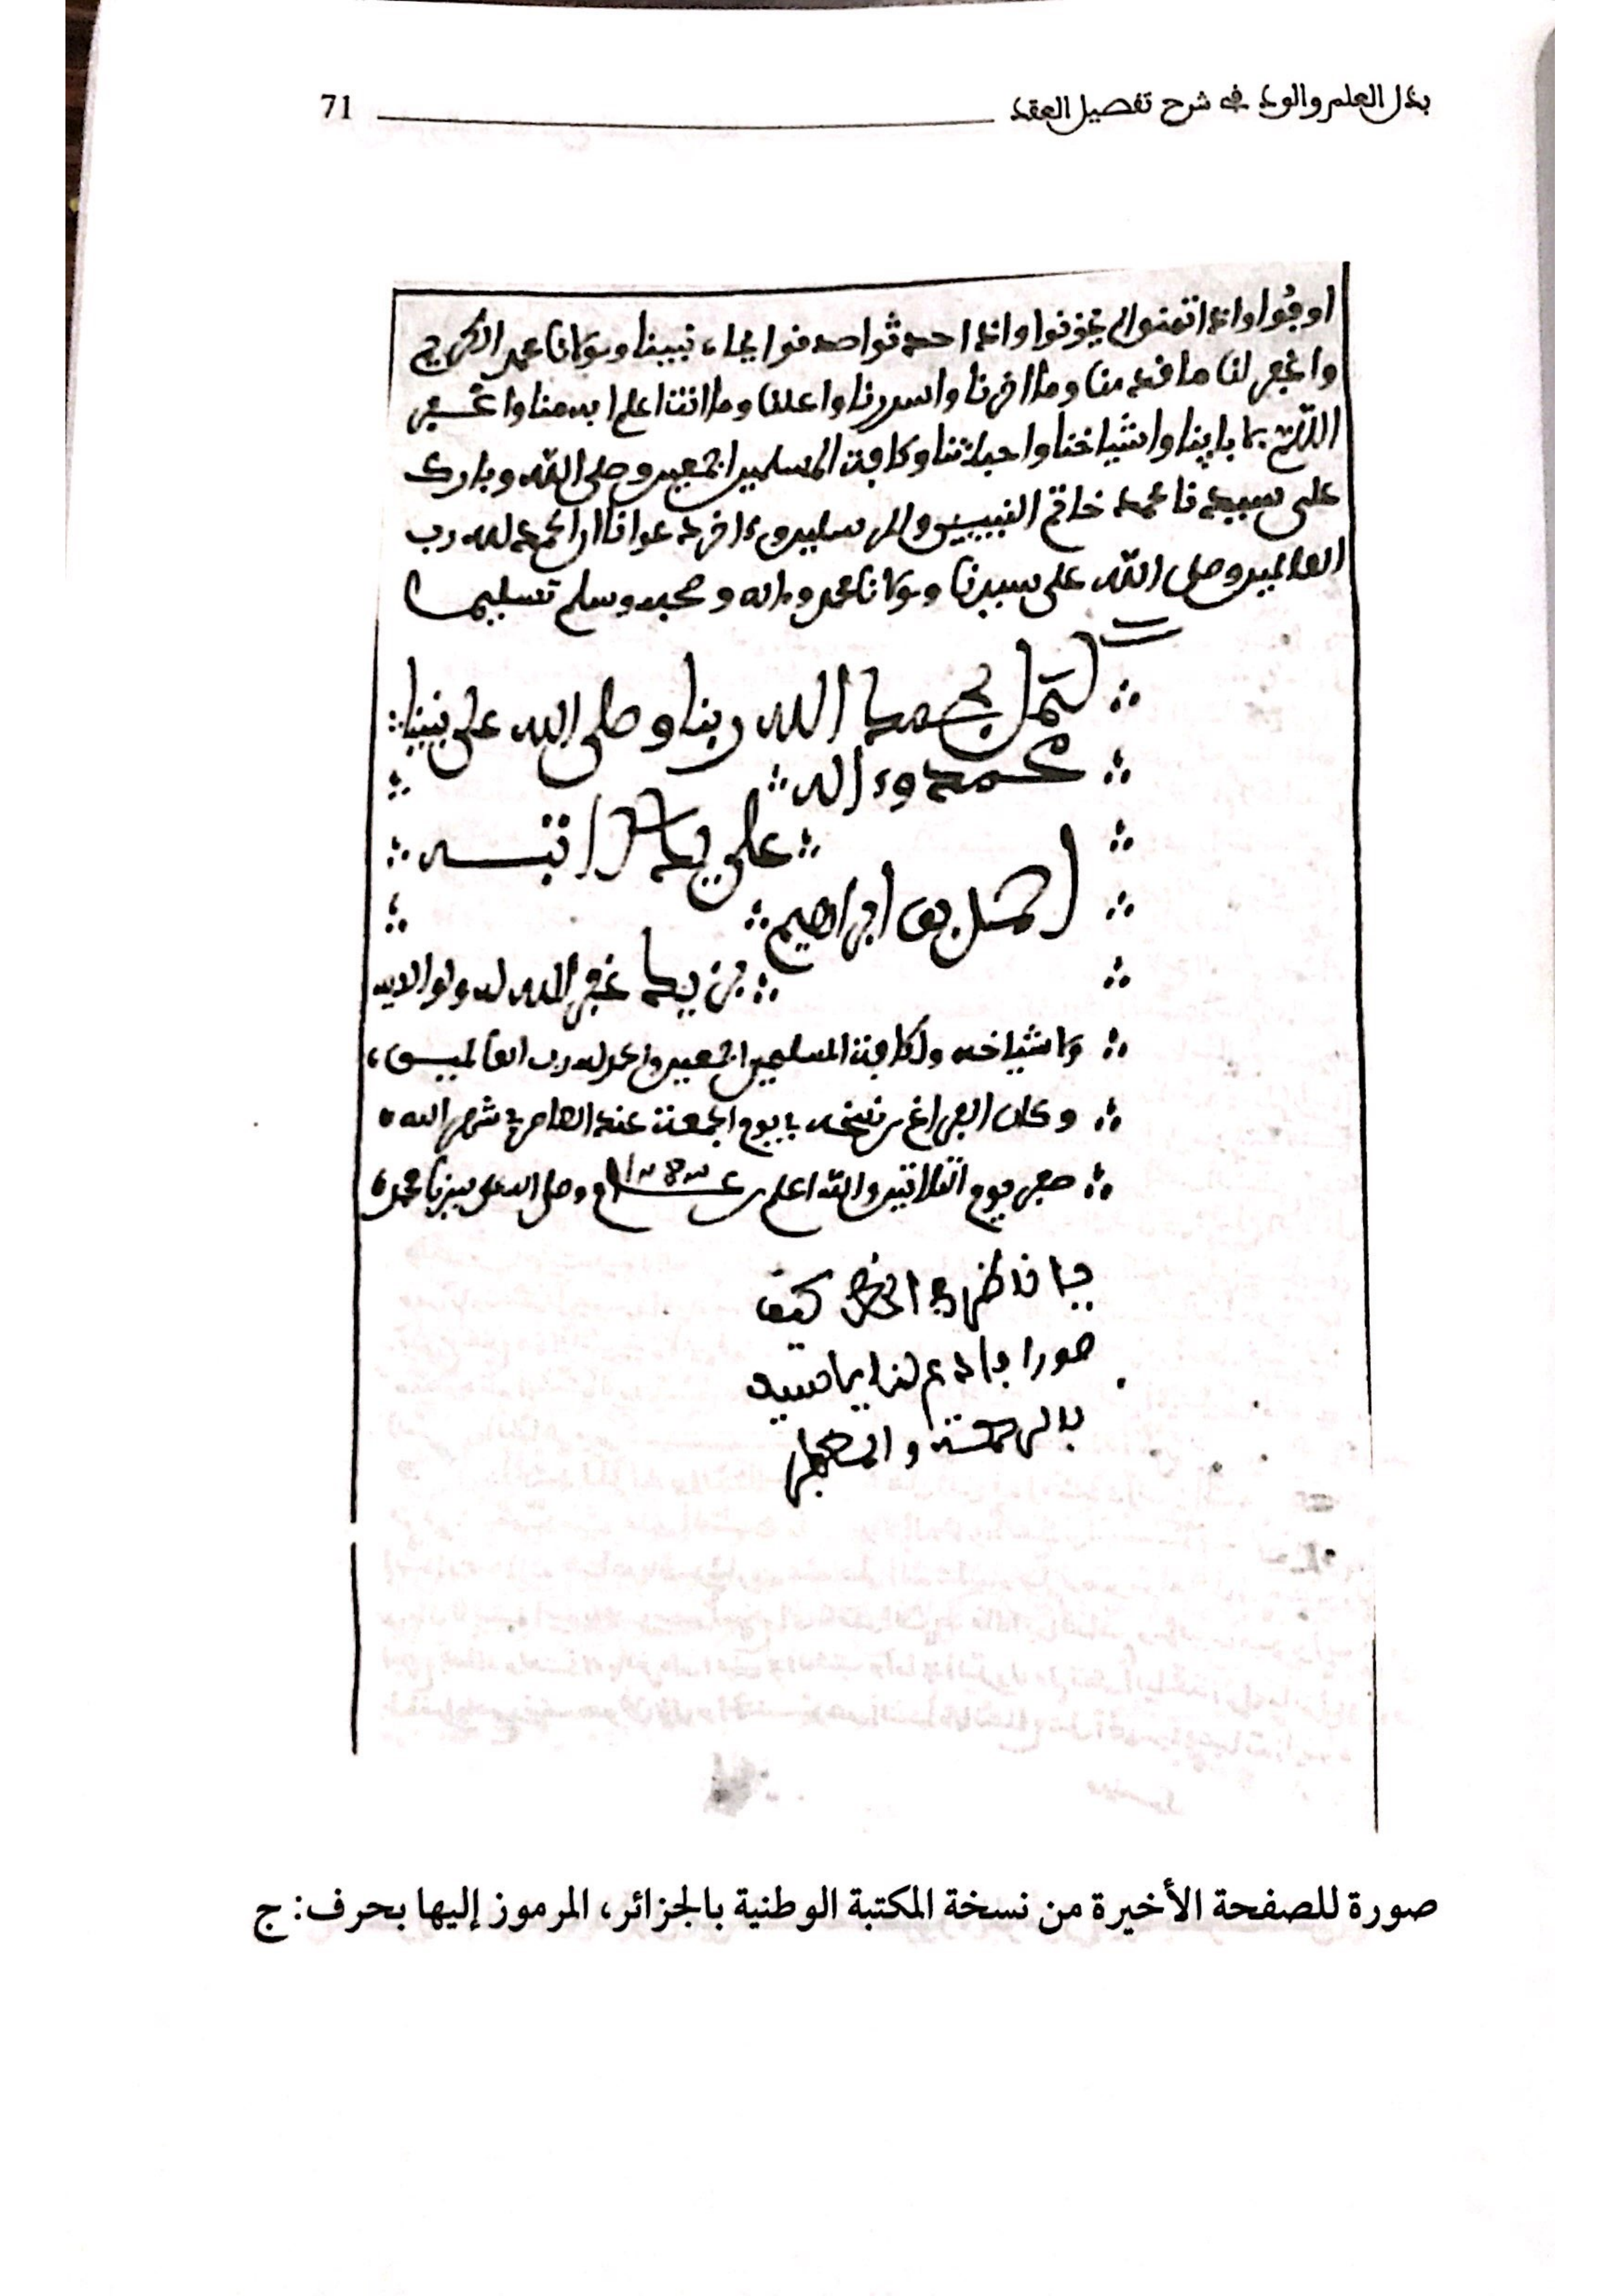 بذل العلم والود في شرح تفصيل العقد
71
اوفوا واذا اتمنوا لم يخونوا واذا احدثوا صدفوا نبينا ومولانا محمد الكريم
واغفر لنا ما قدمنا وما اخرنا واسررنا واعلنا وما انت اعلم به منا واغفر
اللهم لآبائنا واشياخنا واحبتنا وكافة المسلمين اجمعين وصلى الله وبارك
على سيدنا محمد خاتم النبيين والمرسلين وءاخر دعوانا ان الحمد لله رب
العالمين وصلى الله على سيدنا ومولانا محمد وءاله وصحبه وسلم تسليما
كمل بحمد الله ربنا وصلى الله على نبينا
محمد وءاله
على يد كاتبه
بن ابراهيم
بن يد غفر الله له ولوالديه
ولاشياخه ولكافة المسلمين اجمعين والحمد لله رب العالمين
وكان الفراغ من نسخه يوم الجمعة عند العاصر في شهر الله
صفر يوم الثلاثين والله اعلم وصلى الله على سيدنا محمد
فيا ناظرا في الخط كيف
صورا فادع لنا يا سيد
بالرحمة والمغفر
صورة للصفحة الأخيرة من نسخة المكتبة الوطنية بالجزائر، المرموز إليها بحرف: ج